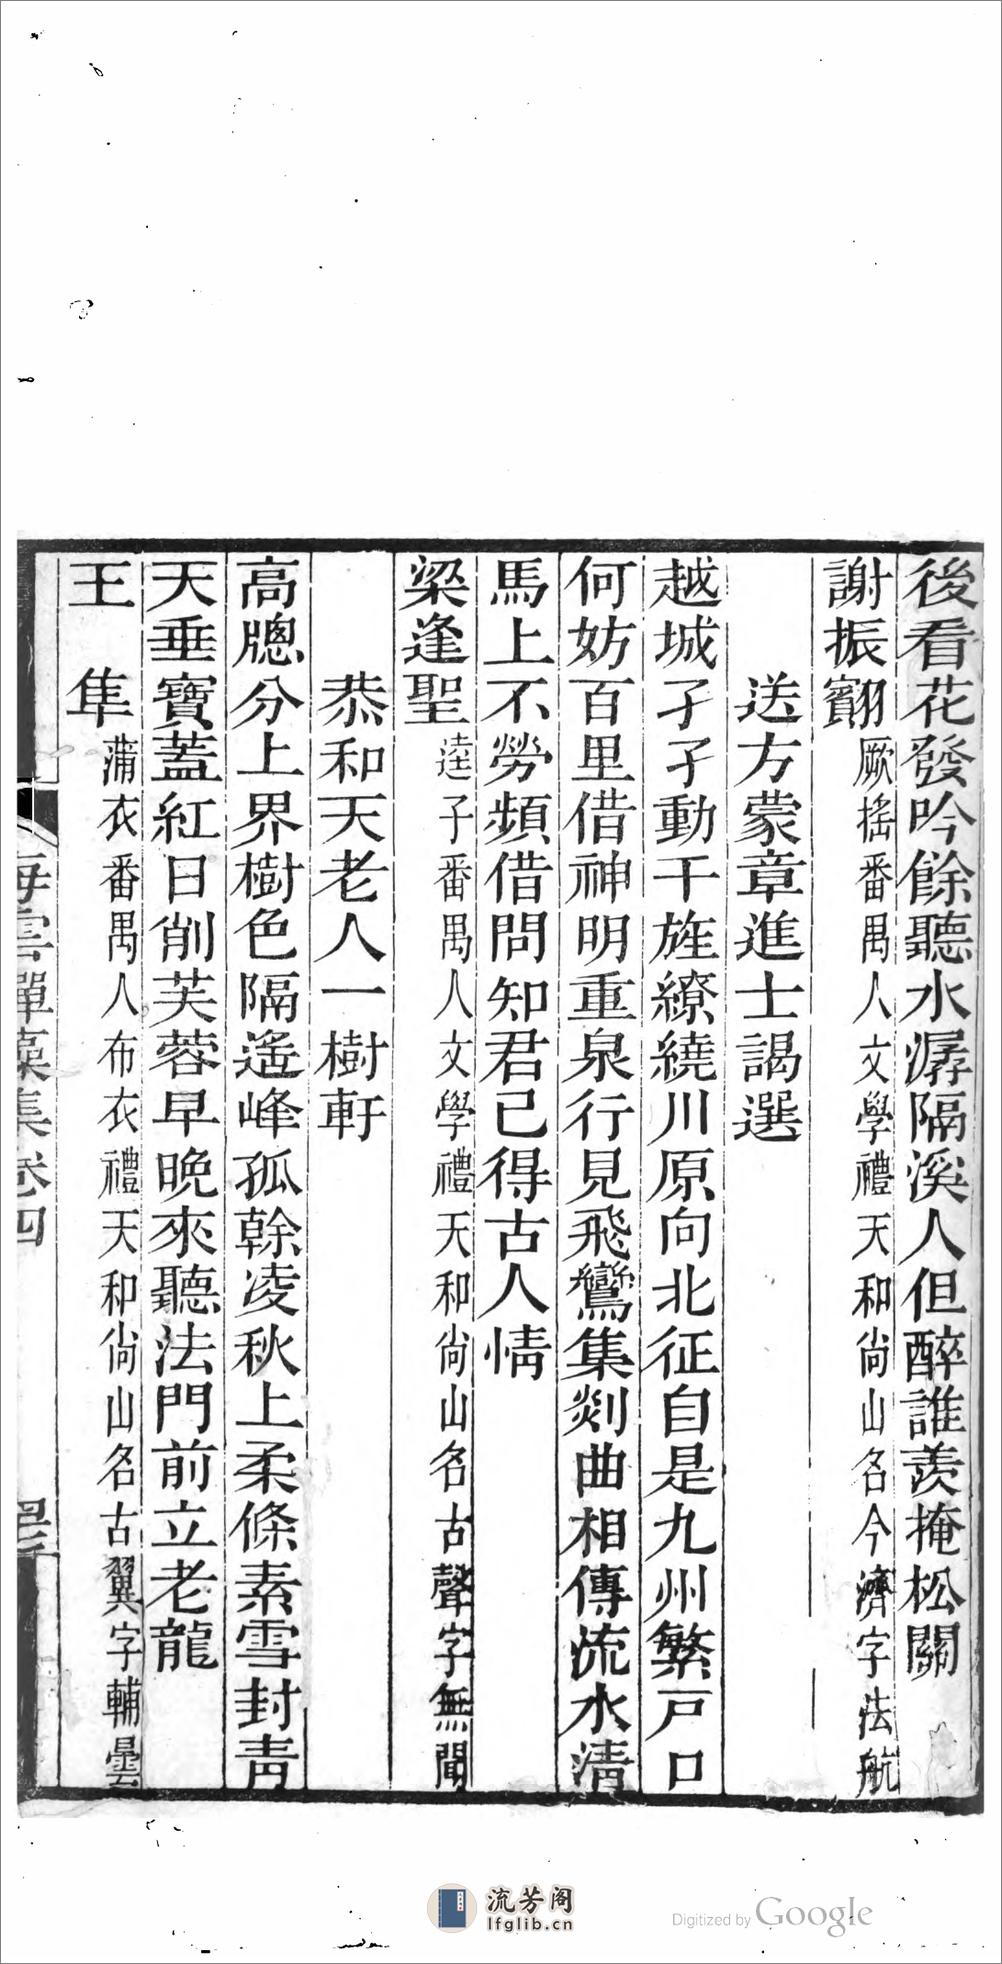 後看花發吟餘聽水潺隔溪人但醉誰羡掩松關
謝振翷厥搖番禺人文學禮天和尙山名今濟字法航
送方蒙章進士謁選
越城孑孑動干旌繚繞川原向北征自是九州繁戸口
何妨百里借神明重泉行見飛鸞集剡曲相傳流水清
馬上不勞頻借問知君已得古人情
梁逢聖逵子番禺人文學禮天和尙山名古聲字無聞
恭和天老人一樹軒
高牕分上界樹色隔遙峰孤幹凌秋上柔條素雪封靑
天垂寶蓋紅日削芙蓉早晚來聽法門前立老龍
王隼蒲衣番禺人布衣禮天和尙山名古翼字輔曇
海雲禪藻集卷四
流芳阁
lfglib.cn
Digitized by Google